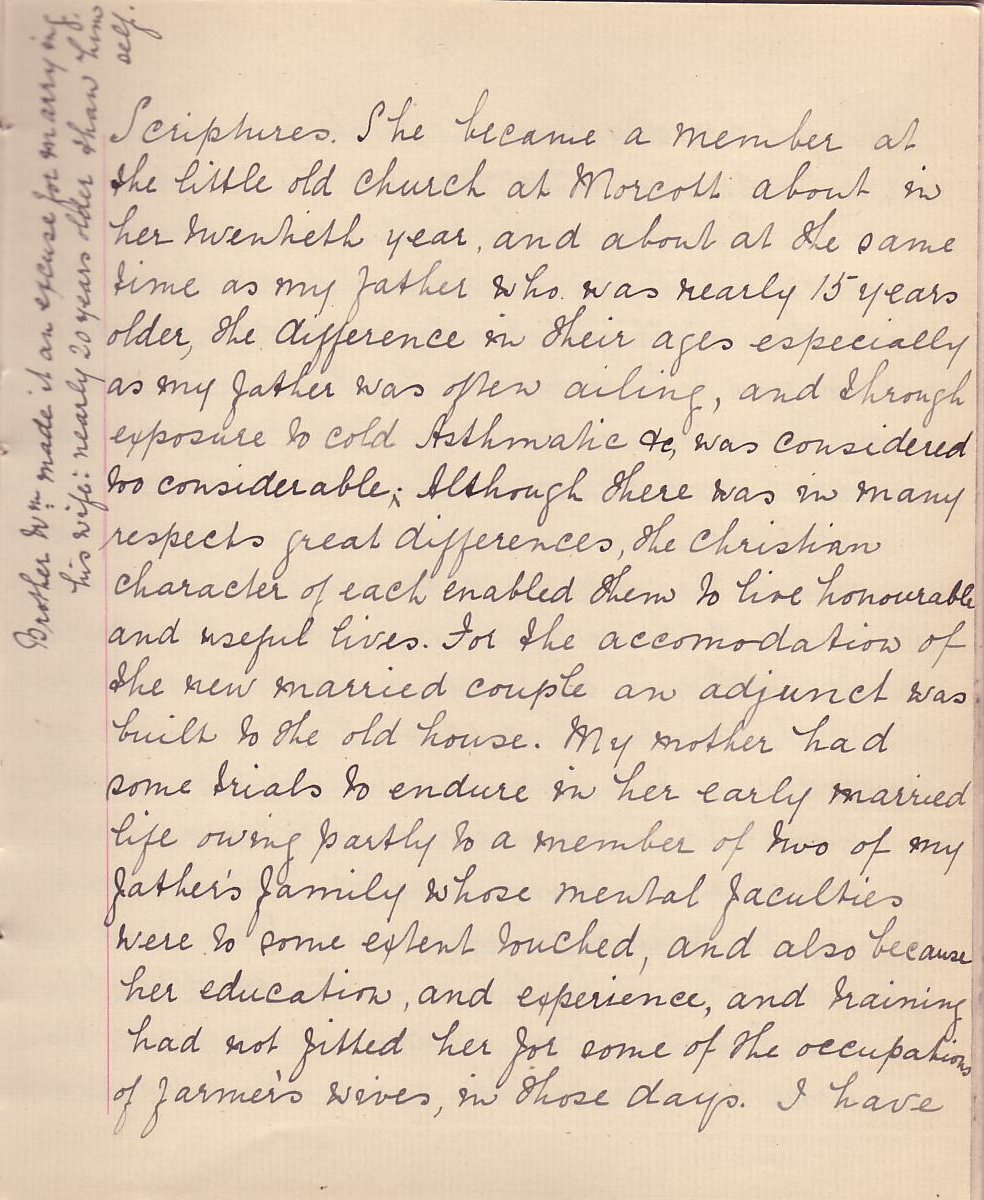 Scriptures. She became a member at
the little old church at Morcott about in
her twentieth year, and about at the same
time as my father who was nearly 15 years
older, the difference in their ages especially
as my father was often ailing, and through
exposure to cold Asthmatic &c, was considered
too considerable; Although there was in many
respects great differences, the christian
character of each enabled them to live honourable
and useful lives. For the accomodation of
the new married couple an adjunct was
built to the old house. My mother had
some trials to endure in her early married
life owing partly to a member of two of my
father's family whose mental faculties
were to some extent touched, and also because
her education, and experience, and training
had not fitted her for some of the occupations
of farmer's wives, in those days. I have
Brother Wm: made it an excuse for marrying
his wife: nearly 20 years older than him
self.